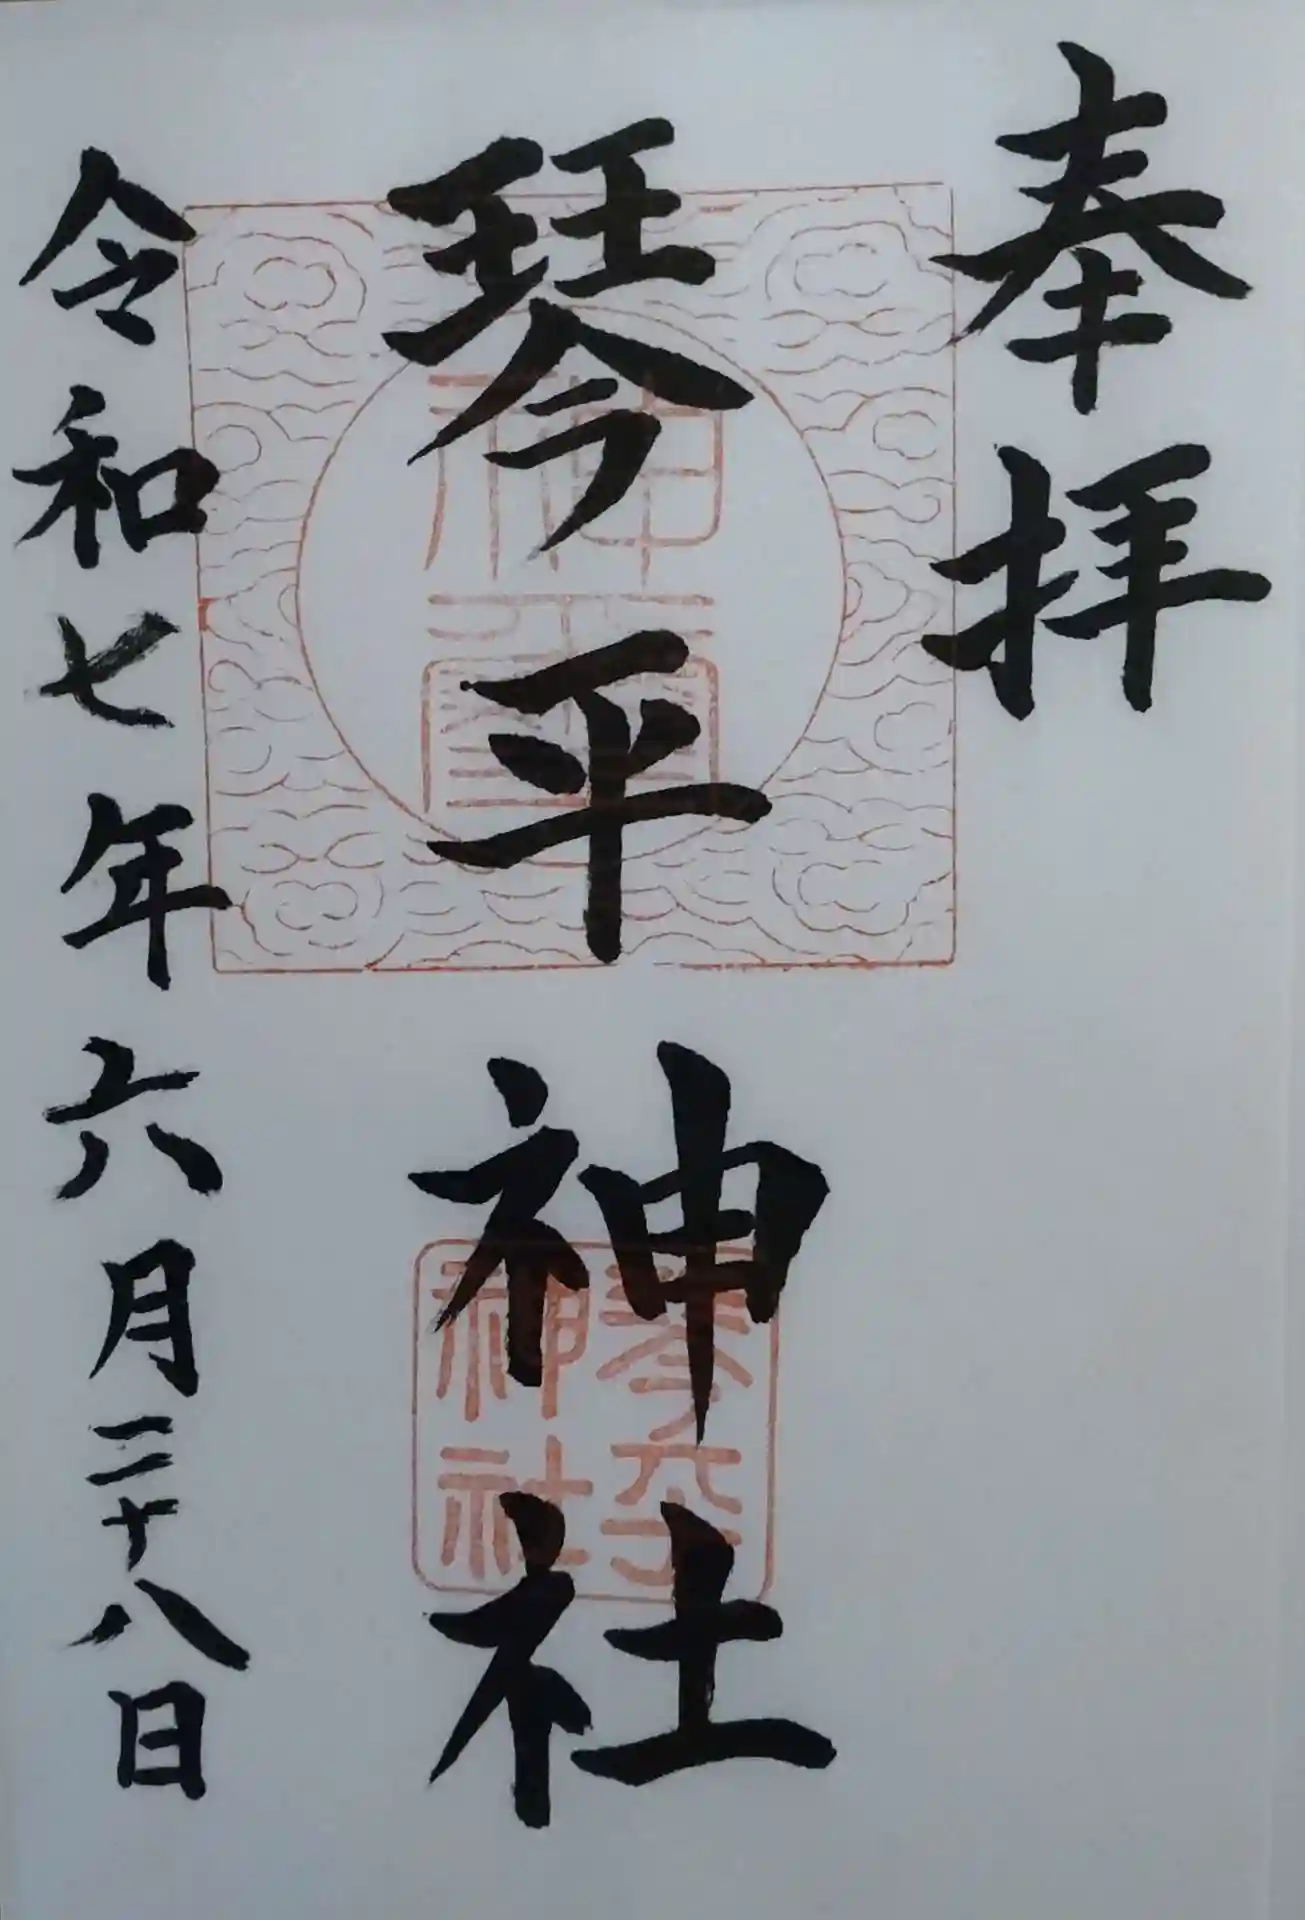 奉拝
琴平神社
令和七年六月二十八日
琴平
神社